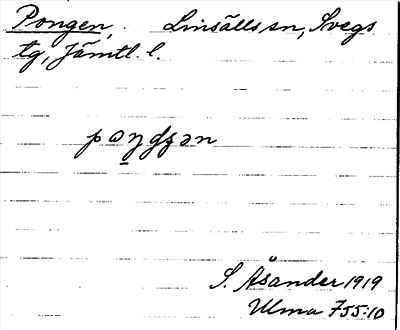 Pongen, Linsälls sn, Svegs
tg, Jämtl. l.
S. Åsander 1919
Ulma 755:10